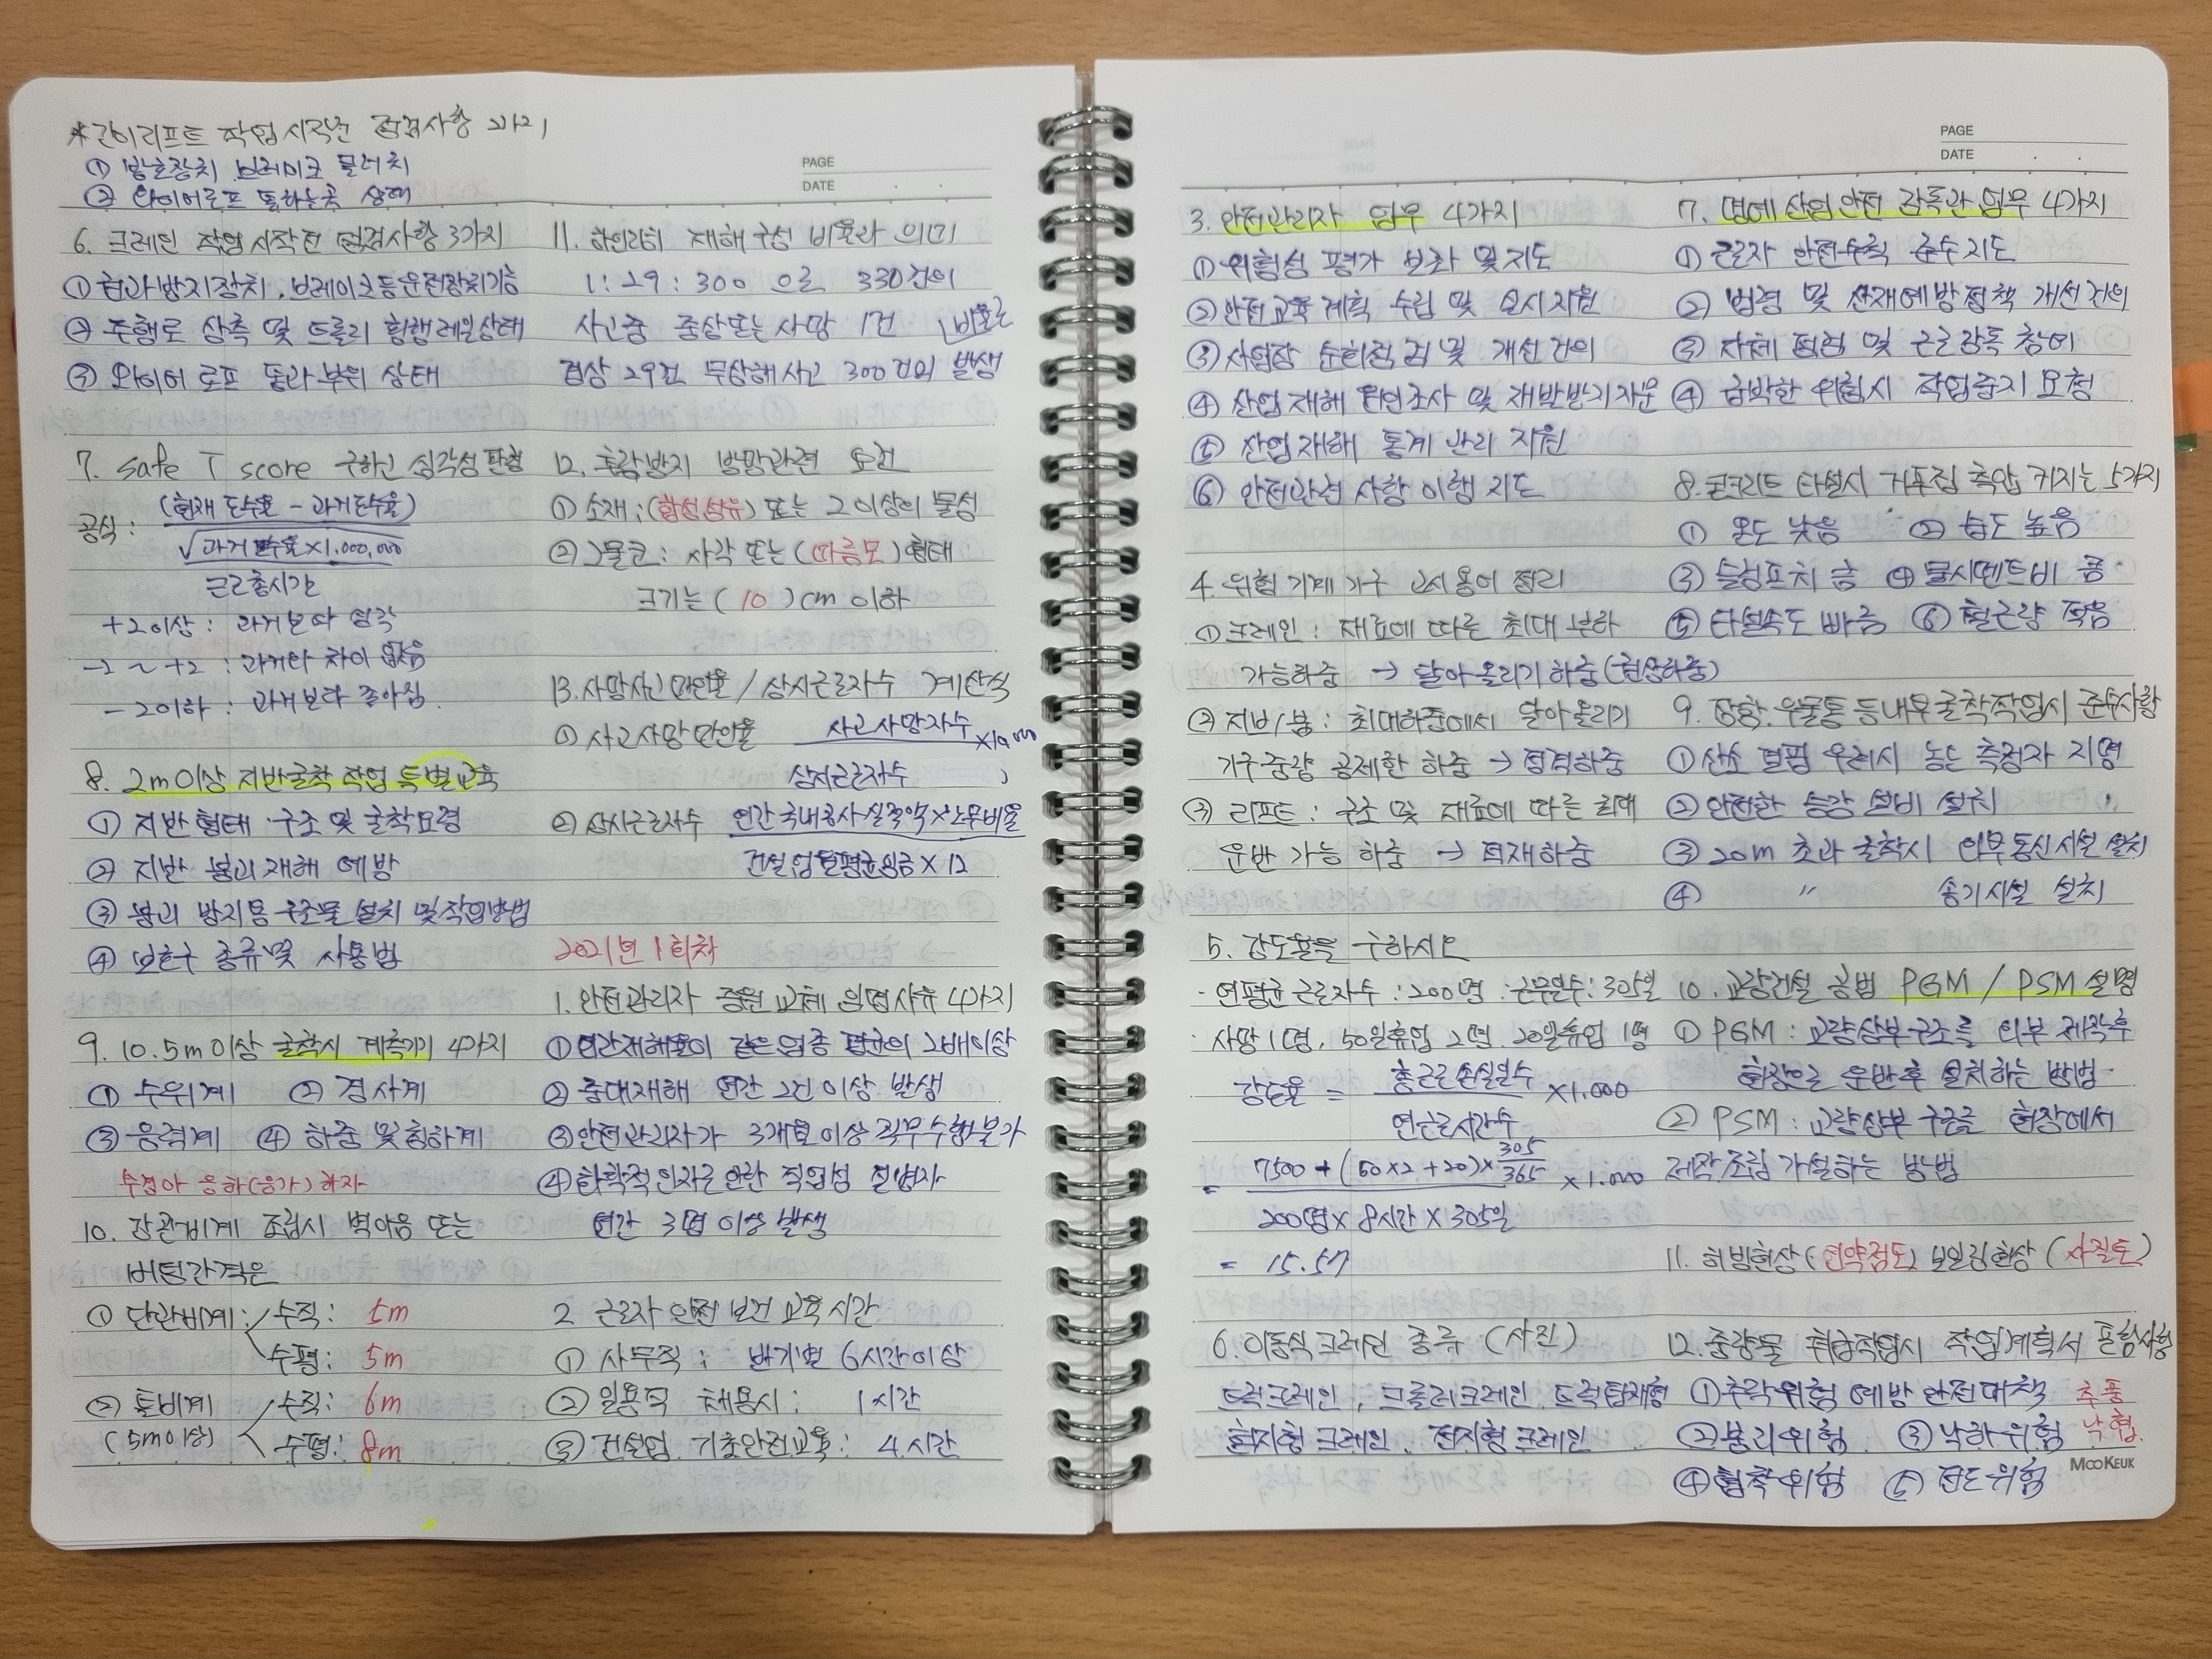 *간이리프트 작업시작전 점검사항 2가지
① 방호장치 브레이크 클러치
② 와이어로프 통하는곳 상태
PAGE
DATE
6. 크레인 작업시작전 점검사항 3가지
① 권과방지장치, 브레이크등운전장치기능
② 주행로 상측 및 트롤리 횡행레일상태
③ 와이어 로프 통과부위 상태
7. Safe T score 구하고 심각성 판정
공식 : (현재 도수율 - 과거도수율)
√과거도수율×1,000,000
근로총시간
+2이상 : 과거보다 심각
-2 ~ +2 : 과거와 차이 없음
-2이하 : 과거보다 좋아짐
8. 2m이상 지반굴착 작업 특별교육
① 지반형태 구조 및 굴착요령
② 지반 붕괴재해 예방
③ 붕괴 방지용 구조물 설치 및 작업방법
④ 보호구 종류 및 사용법
9. 10.5m이상 굴착시 계측기기 4가지
① 수위계 ② 경사계
③ 응력계 ④ 하중 및 침하계
수경아 응하(응가)하자
10. 강관비계 조립시 벽이음 또는
버팀간격은
① 단관비계: 수직: 5m
수평: 5m
② 틀비계 수직: 6m
(5m이상) 수평: 8m
11. 하인리히 재해구성 비율과 의미
1 : 29 : 300 으로 330건의
사고중 중상또는사망 1건
경상 29건 무상해사고 300건의 발생
비율로
12. 추락방지 방망관련 요건
① 소재 : (합성섬유) 또는 그 이상의 물성
② 그물코 : 사각 또는 (마름모) 형태
크기는 ( 10 ) cm 이하
13. 사망사고만인율 / 상시근로자수 계산식
① 사고사망만인율 사고사망자수 ×10,000
상시근로자수
② 상시근로자수 연간국내공사실적액×노무비율
건설업월평균임금×12
2021년 1회차
1. 안전관리자 증원 교체 임명사유 4가지
① 연간재해율이 같은업종 평균의 2배이상
② 중대재해 연간 2건이상 발생
③ 안전관리자가 3개월이상 직무수행불가
④ 화학적인자로인한 직업성 질병자
연간 3명이상 발생
2 근로자 안전 보건 교육시간
① 사무직 : 반기별 6시간이상
② 일용직 채용시 : 1시간
③ 건설업 기초안전교육 : 4시간
PAGE
DATE
3. 안전관리자 업무 4가지
① 위험성 평가 보좌 및 지도
② 안전교육계획 수립 및 실시지원
③ 사업장 순회점검 및 개선 건의
④ 산업재해 원인조사 및 재발방지자문
⑤ 산업재해 통계 관리 지원
⑥ 안전관련 사항 이행 지도
4. 위험 기계 기구 용어 정리
① 크레인 : 재료에 따른 최대 부하
가능하중 → 달아올리기하중(권상하중)
② 지브/붐 : 최대하중에서 달아올리기
기구중량 공제한 하중 → 정격하중
③ 리프트 : 구조 및 재료에 따른 최대
운반 가능 하중 → 적재하중
5. 강도율을 구하시오
· 연평균 근로자수 : 200명 · 근무일수 : 305일
· 사망 1명, 50일휴업 2명, 20일휴업 1명
강도율 = 총근로손실일수 ×1,000
연근로시간수
= 7500 + (50×2 +20)×305/365 ×1,000
200명× 8시간×305일
= 15.57
6. 이동식크레인 종류 (사진)
트럭크레인, 크롤러크레인, 트럭탑재형
험지형 크레인, 전지형 크레인
7. 명예산업안전 감독관업무 4가지
① 근로자 안전수칙 준수지도
② 법령 및 산재예방정책 개선건의
③ 자체 점검 및 근로감독 참여
④ 급박한 위험시 작업중지 요청
8. 콘크리트 타설시 거푸집 측압 커지는 5가지
① 온도 낮음 ② 습도 높음
③ 슬럼프치 큼 ④ 물시멘트비 큼
⑤ 타설속도 빠름 ⑥ 철근량 적음
9. 잠함, 우물통 등내부굴착작업시 준수사항
① 산소 결핍 우려시 농도 측정자 지명
② 안전한 승강 설비 설치
③ 20m 초과 굴착시 외부통신시설 설치
④ 〃 송기시설 설치
10. 교량건설 공법 PGM / PSM 설명
① PGM : 교량상부구조를 외부 제작후
현장으로 운반후 설치하는 방법
② PSM : 교량상부 구조를 현장에서
제작/조립 가설하는 방법
11. 히빙현상(연약점토) 보일링현상(사질토)
12. 중량물 취급작업시 작업계획서 포함사항
① 추락위험 예방 안전대책 추붕
② 붕괴위험 ③ 낙하위험 낙협
④ 협착위험 ⑤ 전도위험
MOOKEUK